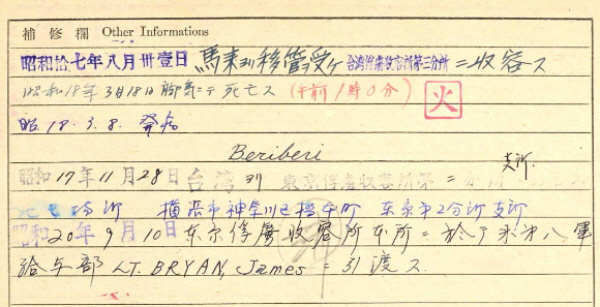 補修欄 Other Informations
昭和拾七年八月卅壹日 馬来ヨリ移管受ケ 台湾俘虜収容所第三分所ニ収容ス
昭和18年3月18日脚気ニテ死亡ス (午前1時0分) 火
昭18.3.8. 発病
Beriberi
昭和17年11月28日台湾ヨリ東京俘虜収容所第二分所 支所
場所 横浜市神奈川区橋本町 東京第2分所支所
昭和20年9月10日東京俘虜収容所本所ニ於テ米第八軍
給与部 LT. BRYAN, James ニ引渡ス